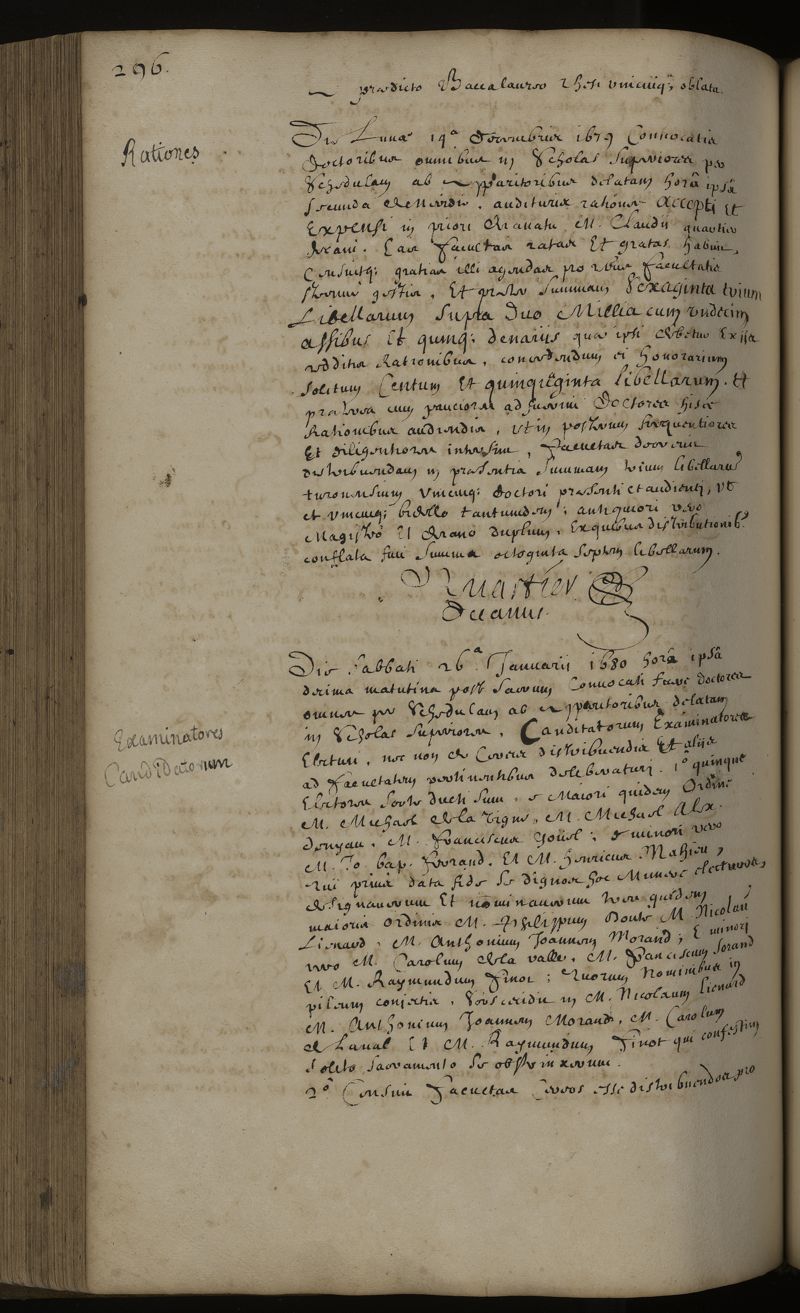 296.
prædicto Baccalaureo Thesi unicuiq; oblata.
Rationes
Die Lunæ 14ª Decembris 1679 Convocatis
Doctoribus omnibus in Scholas Superiores per
Schedulam ab Apparitoribus delatam horâ ipsâ
secunda de meridie, audituris rationes Accepti Et
Expensi in priori decanatu M. Claudii quartier
decani. Eas Facultas ratas Et gratas habuit,
Censuitq; gratias illi agendas pro rebus Facultatis
strenue gestis, Et præter Summam Sexaginta trium
Libellarum Supra duo Millia cum undecim
assibus Et quinq; denariis quæ ipsi debetur Ex iis
redditis Rationibus, concedendum ei Honorarium
solitum Centum Et quinquaginta libellarum. Et
præterea cum pauciores adfuerint Doctores hisce
Rationibus audiendis, ut in posterum frequentiores
Et diligentiores intersint, Facultas decrevit
distribuendam in præsentia Summam trium libellarum
turonensium unicuiq; Doctori præsenti et audienti, ut
et unicuiq; bidello tantumdem; antiquiori vero
Magistro Et decano duplum, Ex quibus distributionib.
conflata fuit Summa octoginta septem libellarum.
Quartier
Decanus.
Die Sabbati 26ª Januarii 1680 horâ ipsâ
decima matutina post sacrum Convocati fuere doctores
omnes per Schedulam ab apparitoribus delatam
in Scholas Superiores, Canditatorum Examinatores
Examinatores
Candidatorum
Electuri, nec non de Cereis distribuendis Et aliis
ad Facultatem pertinentibus deliberaturi. 1º quinque
Electores sorte ducti sunt, e Maiori quidem Ordine
M. Michael de la Vigne, M. Michael Alex.
denyau, M. Franciscus Gouel; e minori vero
M. Jo. bap. Ferrand, Et M. Henricus Mahieu,
Qui prima data fide se dignos hoc Munere electuros,
designaverunt Et nominaverunt tres quidem
maioris ordinis M. Philippum Douté M. Nicolaum
Lienard, M. Anthonium Joannem Morand; E minori
vero M. Carolum de la valle, M. Franciscum ferand
Et M. Raymundum Finot; Quorum Nominibus in
pileum conjectis, sors cecidit in M. Nicolaum Lienard
M. Anthonium Joannem Morand, M. Carolum
de Laval Et M. Raymundum Finot qui confestim
solito sacramento se obstrinxerunt.
2º Censuit Facultas Cereos esse distribuendos pro